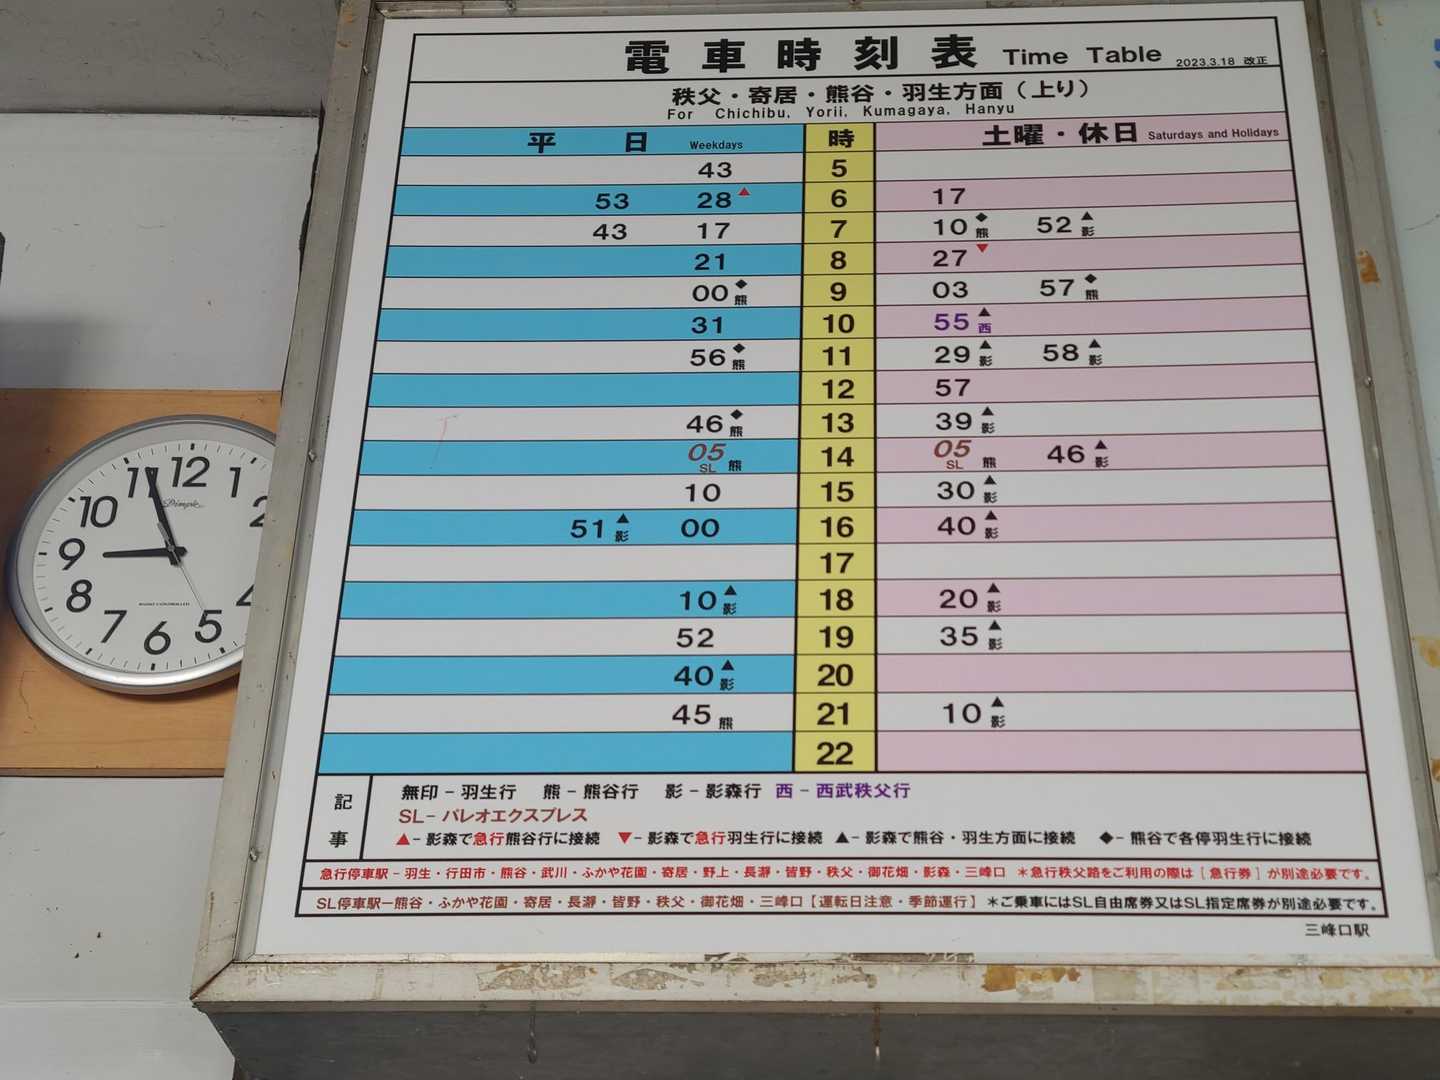 電車時刻表 Time Table 2023.3.18 改正
秩父・寄居・熊谷・羽生方面（上り）
For Chichibu, Yorii, Kumagaya, Hanyu
平日 Weekdays 時 土曜・休日 Saturdays and Holidays
43 5
53 28▲ 6 17
43 17 7 10◆熊 52▲影
21 8 27▼
00◆熊 9 03 57◆熊
31 10 55▲西
56◆熊 11 29▲影 58▲影
12 57
46◆熊 13 39▲影
05 SL 熊 14 05 SL 熊 46▲影
10 15 30▲影
51▲影 00 16 40▲影
17
10▲影 18 20▲影
52 19 35▲影
40▲影 20
45 熊 21 10▲影
22
記事
無印－羽生行 熊－熊谷行 影－影森行 西－西武秩父行
SL－パレオエクスプレス
▲－影森で急行熊谷行に接続 ▼－影森で急行羽生行に接続 ▲－影森で熊谷・羽生方面に接続 ◆－熊谷で各停羽生行に接続
急行停車駅－羽生・行田市・熊谷・武川・ふかや花園・寄居・野上・長瀞・皆野・秩父・御花畑・影森・三峰口 ＊急行秩父路をご利用の際は［急行券］が別途必要です。
SL停車駅－熊谷・ふかや花園・寄居・長瀞・皆野・秩父・御花畑・三峰口【運転日注意・季節運行】＊ご乗車にはSL自由席券又はSL指定席券が別途必要です。
三峰口駅
12
11 1
10 2
Dimple
9
8 4
RADIO CONTROLLED
7 5
6